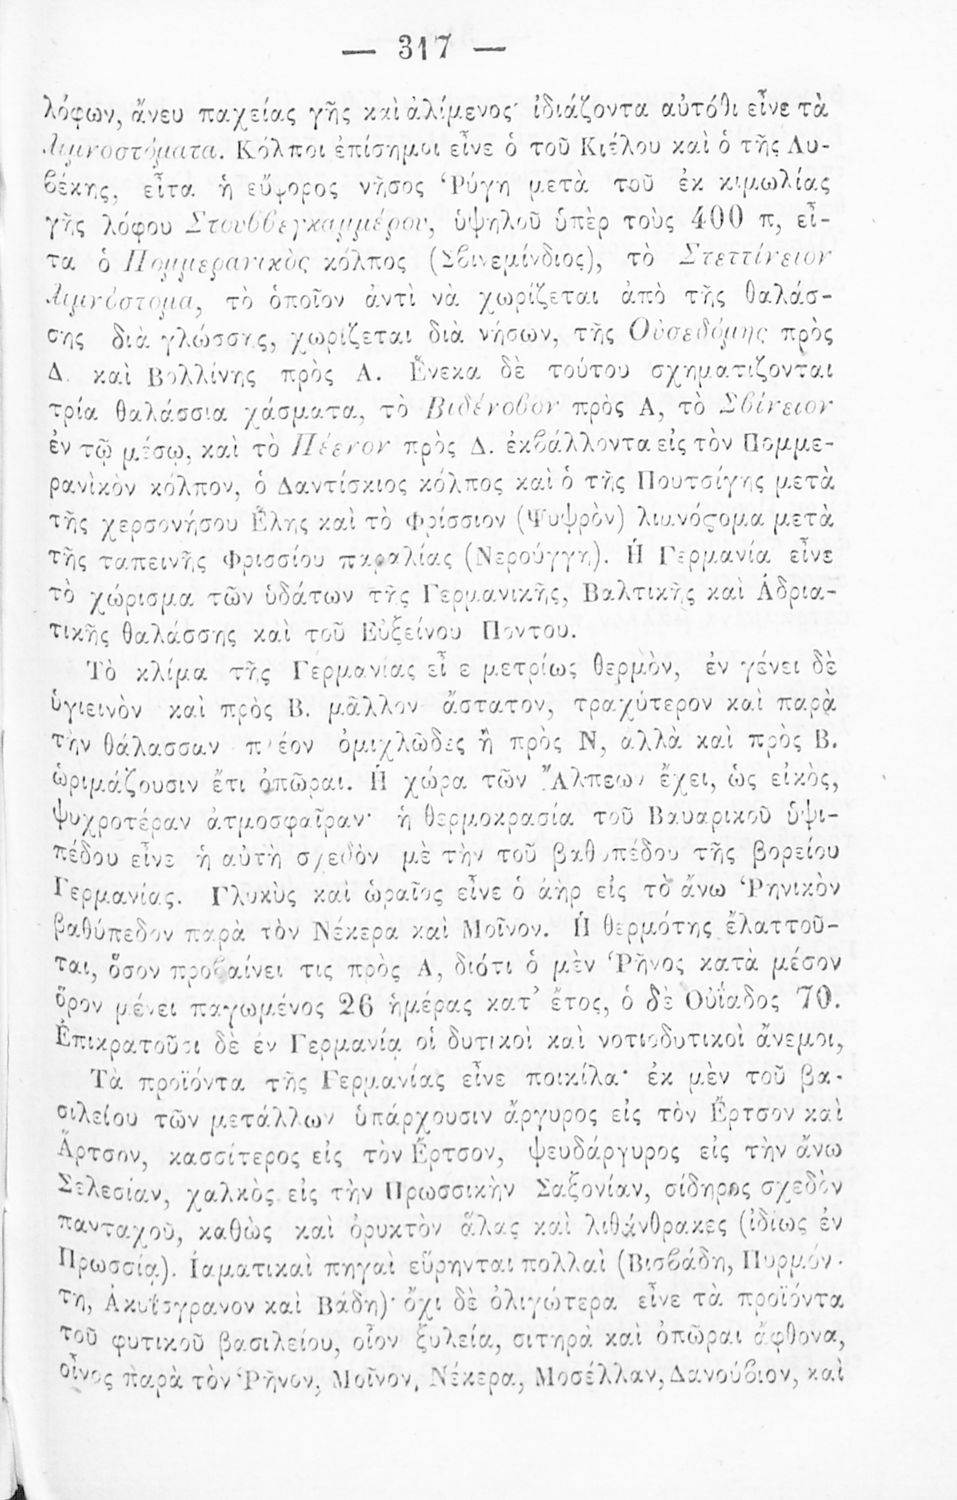 — 317 —
λόφων, ἄνευ παχείας γῆς καὶ ἀλίμενος· ἰδιάζοντα αὐτόθι εἶνε τὰ
Λιμνοστόματα. Κόλποι ἐπίσημοι εἶνε ὁ τοῦ Κιέλου καὶ ὁ τῆς Λυ-
βέκης, εἶτα ἡ εὔφορος νῆσος Ῥύγη μετὰ τοῦ ἐκ κιμωλίας
γῆς λόφου Στουββεγκαμμέρου, ὑψηλοῦ ὑπὲρ τοὺς 400 π, εἶ-
τα ὁ Πομμερανικὸς κόλπος (Σβινεμίνδιος), τὸ Στεττίνειον
Λιμνόστομα, τὸ ὁποῖον ἀντὶ νὰ χωρίζεται ἀπὸ τῆς θαλάσ-
σης διὰ γλώσσης, χωρίζεται διὰ νήσων, τῆς Οὐσεδόμης πρὸς
Δ. καὶ Βολλίνης πρὸς Α. Ἕνεκα δὲ τούτου σχηματίζονται
τρία θαλάσσια χάσματα, τὸ Βιδένοβον πρὸς Α, τὸ Σβίνειον
ἐν τῷ μέσῳ, καὶ τὸ Πέενον πρὸς Δ. ἐκβάλλοντα εἰς τὸν Πομμε-
ρανὶκὸν κόλπον, ὁ Δαντίσκιος κόλπος καὶ ὁ τῆς Πουτσίγης μετὰ
τῆς χερσονήσου Ἕλης καὶ τὸ Φρίσσιον (Ψυψρὸν) λιμνόςομα μετὰ
τῆς ταπεινῆς Φρισσίου παραλίας (Νερούγγη). Ἡ Γερμανία εἶνε
τὸ χώρισμα τῶν ὑδάτων τῆς Γερμανικῆς, Βαλτικῆς καὶ Ἀδρια-
τικῆς θαλάσσης καὶ τοῦ Εὐξείνου Πόντου.
Τὸ κλίμα τῆς Γερμανίας εἶ ε μετρίως θερμὸν, ἐν γένει δὲ
ὑγιεινὸν καὶ πρὸς Β. μᾶλλον ἄστατον, τραχύτερον καὶ παρὰ
τὴν θάλασσαν πλέον ὁμιχλῶδες ἢ πρὸς Ν, αλλὰ καὶ πρὸς Β.
ὡριμάζουσιν ἔτι ὀπῶραι. Ἡ χώρα τῶν Ἄλπεων ἔχει, ὡς εἰκὸς,
ψυχροτέραν ἀτμοσφαῖραν· ἡ θερμοκρασία τοῦ Βαυαρικοῦ ὑψι-
πέδου εἶνε ἡ αὐτὴ σχεδὸν μὲ τὴν τοῦ βαθυπέδου τῆς βορείου
Γερμανίας. Γλυκὺς καὶ ὡραῖος εἶνε ὁ ἀὴρ εἰς τὸ ἄνω Ῥηνικὸν
βαθύπεδον παρὰ τὸν Νέκερα καὶ Μοῖνον. Ἡ θερμότης ἐλαττοῦ-
ται, ὅσον προβαίνει τις πρὸς Α, διότι ὁ μὲν Ῥῆνος κατὰ μέσον
ὅρον μένει παγωμένος 26 ἡμέρας κατ' ἔτος, ὁ δὲ Οὐΐαδος 70.
Ἐπικρατοῦσι δὲ ἐν Γερμανίᾳ οἱ δυτικοὶ καὶ νοτιοδυτικοὶ ἄνεμοι,
Τὰ προϊόντα τῆς Γερμανίας εἶνε ποικίλα· ἐκ μὲν τοῦ βα-
σιλείου τῶν μετάλλων ὑπάρχουσιν ἄργυρος εἰς τὸν Ἔρτσον καὶ
Ἄρτσον, κασσίτερος εἰς τὸν Ἔρτσον, ψευδάργυρος εἰς τὴν ἄνω
Σελεσίαν, χαλκὸς εἰς τὴν Πρωσσικὴν Σαξονίαν, σίδηρος σχεδὸν
πανταχοῦ, καθὼς καὶ ὀρυκτὸν ἅλας καὶ λιθάνθρακες (ἰδίως ἐν
Πρωσσίᾳ). Ἰαματικαὶ πηγαὶ εὕρηνται πολλαὶ (Βισβάδη, Πυρμόν-
τη, Ἀκυΐσγρανον καὶ Βάδη)· ὄχι δὲ ὀλιγώτερα εἶνε τὰ προϊόντα
τοῦ φυτικοῦ βασιλείου, οἷον ξυλεία, σιτηρὰ καὶ ὀπῶραι ἄφθονα,
οἶνος παρὰ τὸν Ῥῆνον, Μοῖνον, Νέκερα, Μοσέλλαν, Δανούβιον, καὶ